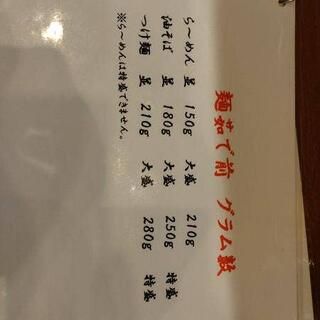 麺茹で前 グラム数
ら～めん 並 150g 大盛 210g
油そば 並 180g 大盛 250g 特盛
つけ麺 並 210g 大盛 280g 特盛
※ら～めんは特盛できません。